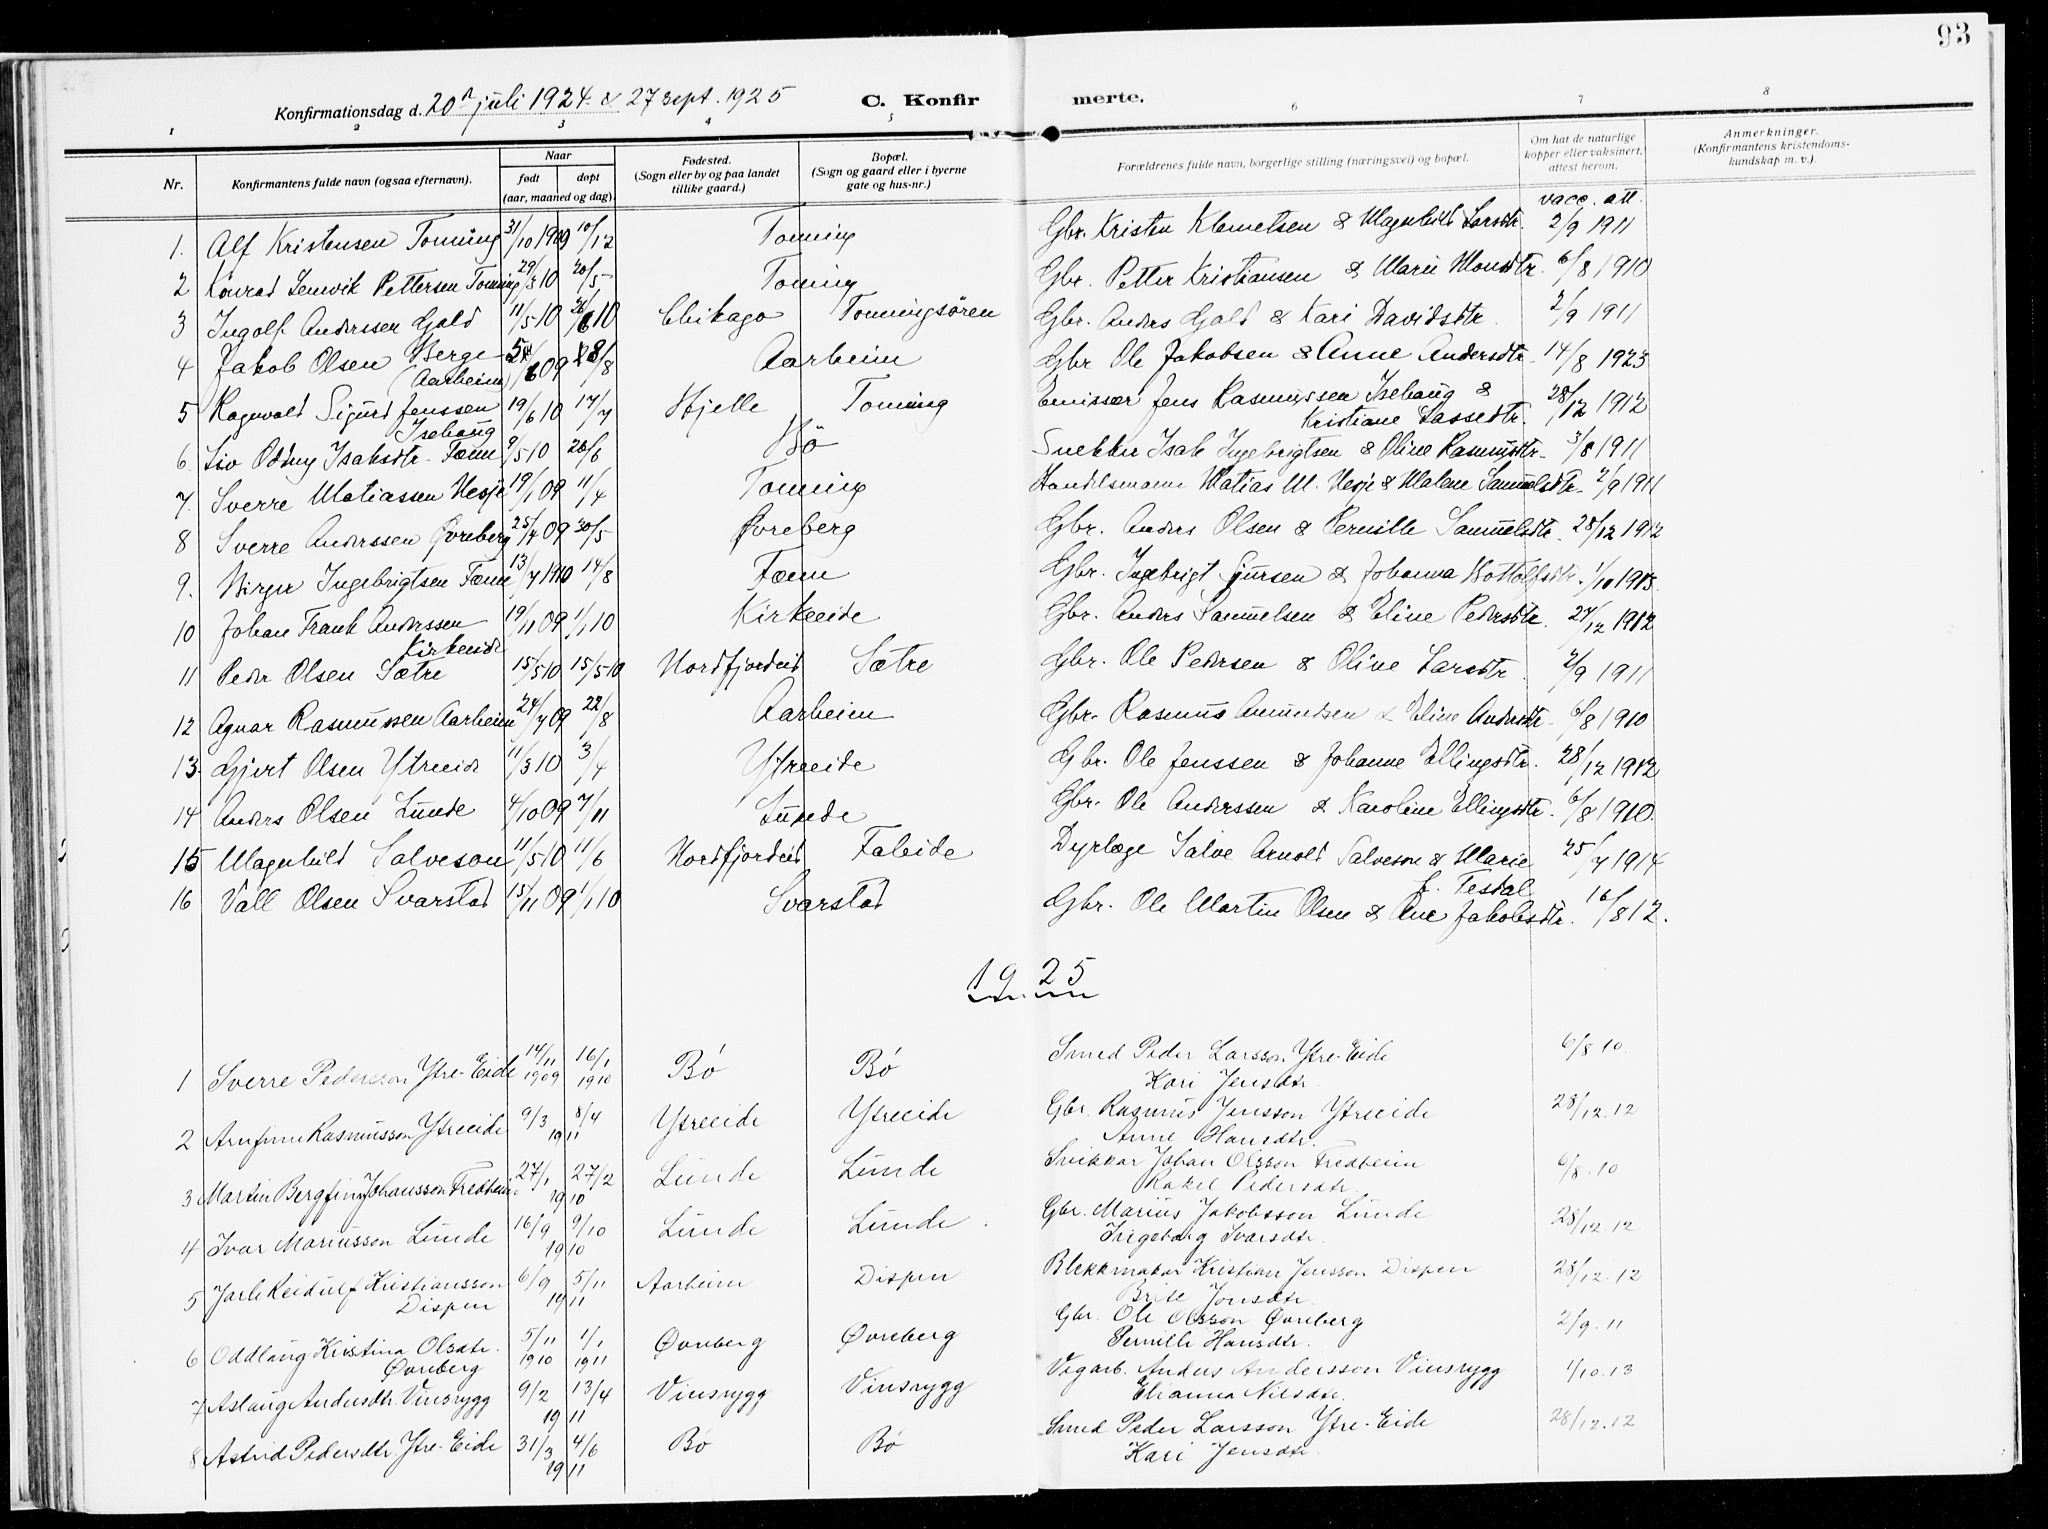 93
Konfirmationsdag d. 20n juli 1924 & 27 sept. 1925 C. Konfir merte.
1 2 3 4 5 6 7 8
Nr. Konfirmantens fulde navn (ogsaa efternavn). Naar født døpt (aar, maaned og dag). Fødested. (Sogn eller by og paa landet tillike gaard.) Bopæl. (Sogn og gaard eller i byerne gate og hus-nr.) Forældrenes fulde navn, borgerlige stilling (næringsvei) og bopæl. Om hat de naturlige kopper eller vaksinert, attest herom. Anmerkninger. (Konfirmantens kristendomskundskap m. v.).
vacc. att.
1. Alf Kristensen Tonning 31/10 1909 10/12 Tonning Gbr. Kristen Klemetsen & Magnhild Larsdtr. 2/9 1911
2 Konrad Lenvik Pettersen Tonning 29/3 10 20/5 Tonning Gbr. Petter Kristiansen & Marie Monsdtr. 6/8 1910
3 Ingolf Anderssen Gald 11/5 10 26/6 10 Chikago Tonningsören Gbr. Anders Gald & Kari Davidsdtr. 2/9 1911
4 Jakob Olsen Berge (Aarheim) 6 09 /8 Aarheim Gbr Ole Jakobsen & Anne Andersdtr. 14/8 1923
5 Ragnvald Sigurd Jenssen Isehaug 19/6 10 17/7 Hjelle Tonning Emissær Jens Rasmussen Isehaug & Kristiane Lassedtr. 28/12 1912
6. Liv Oddny Isaksdtr. Fænn 9/5 10 26/6 Bö Snekker Isak Ingebrigtsen & Oline Rasmusdtr. 3/8 1911
7. Sverre Matiassen Nesje 19/1 09 11/4 Tonning Handelsmann Matias M. Nesje & Malene Samuelsdtr. 2/9 1911
8 Sverre Anderssen Øvreberg 25/4 09 30/5 Øvreberg Gbr. Anders Olsen & Pernille Samuelsdtr. 28/12 1912
9. Birger Ingebrigtsen Fænn 13/7 1910 14/8 Fænn Gbr. Ingebrigt Sjursen & Johanna Bottolfsdtr. 1/10 1913.
10 Johan Frank Anderssen Kirkeeide 19/11 09 1/1 10 Kirkeeide Gbr. Anders Samuelsen & Eline Pedersdtr. 27/12 1912
11 Peder Olsen Sætre 15/5 10 15/5 10 Nordfjordeid Sætre Gbr. Ole Pedersen & Oline Larsdtr. 2/9 1911
12 Agnar Rasmussen Aarheim 24/7 09 22/8 Aarheim Gbr. Rasmus Amundsen & Eline Andersdtr. 6/8 1910
13. Gjert Olsen Ytreeide 11/3 10 3/4 Ytreeide Gbr. Ole Jenssen & Johanne Ellingsdtr. 28/12 1912
14 Anders Olsen Lunde 4/10 09 7/11 Lunde Gbr. Ole Anderssen & Karoline Ellingsdtr. 6/8 1910.
15 Magnhild Salveson 11/5 10 11/6 Nordfjordeid Faleide Dyrlæge Salve Arnold Salveson & Marie f. Testal 25/7 1914
16 Vall Olsen Svarstad 15/11 09 1/1 10 Svarstad Gbr. Ole Martin Olsen & Ane Jakobsdtr. 16/8 12.
1925
1 Sverre Pedersson Ytre-Eide 14/11 1909 16/1 1910 Bó Bó Smed Peder Larsson Ytre-Eide Kari Jensdtr. 6/8 10.
2 Arnfinn Rasmusson Ytreeide 9/3 8/4 1911 Ytreeide Ytreeide Gbr. Rasmus Jensson Ytreeide Anne Hansdtr. 28/12.12
3 Martin Bergfinn Johansson Fredheim 27/1 27/2 1910 Lunde Lunde Snikkar Johan Olsson Fredheim Rakel Pedersdtr. 6/8.10
4 Ivar Mariusson Lunde 16/9 9/10 1910 Lunde Lunde Gbr. Marius Jakobsson Lunde Ingeborg Ivarsdtr. 28/12.12
5 Jarle Reidulf Kristiansson Dispen 6/9 5/11 1911 Aarheim Dispen Blekkmakar Kristian Jensson Dispen Brite Jonsdtr. 28/12.12
6 Oddlaug Kristina Olsdtr. Øvreberg 5/11 1910 1/1 1911 Øvreberg Øvreberg Gbr. Ole Olsson Øvreberg Pernille Hansdtr. 2/9.11
7 Aslaug Andersdtr. Vinsrygg 9/2 13/4 1911 Vinsrygg Vinsrygg Vegarb. Anders Andersson Vinsrygg Elianna Nilsdtr. 1/10.13
8 Astrid Pedersdtr. Ytre-Eide 31/3 4/6 1911 Bó Bó Smed Peder Larsson Ytre-Eide Kari Jensdtr. 28/12.12